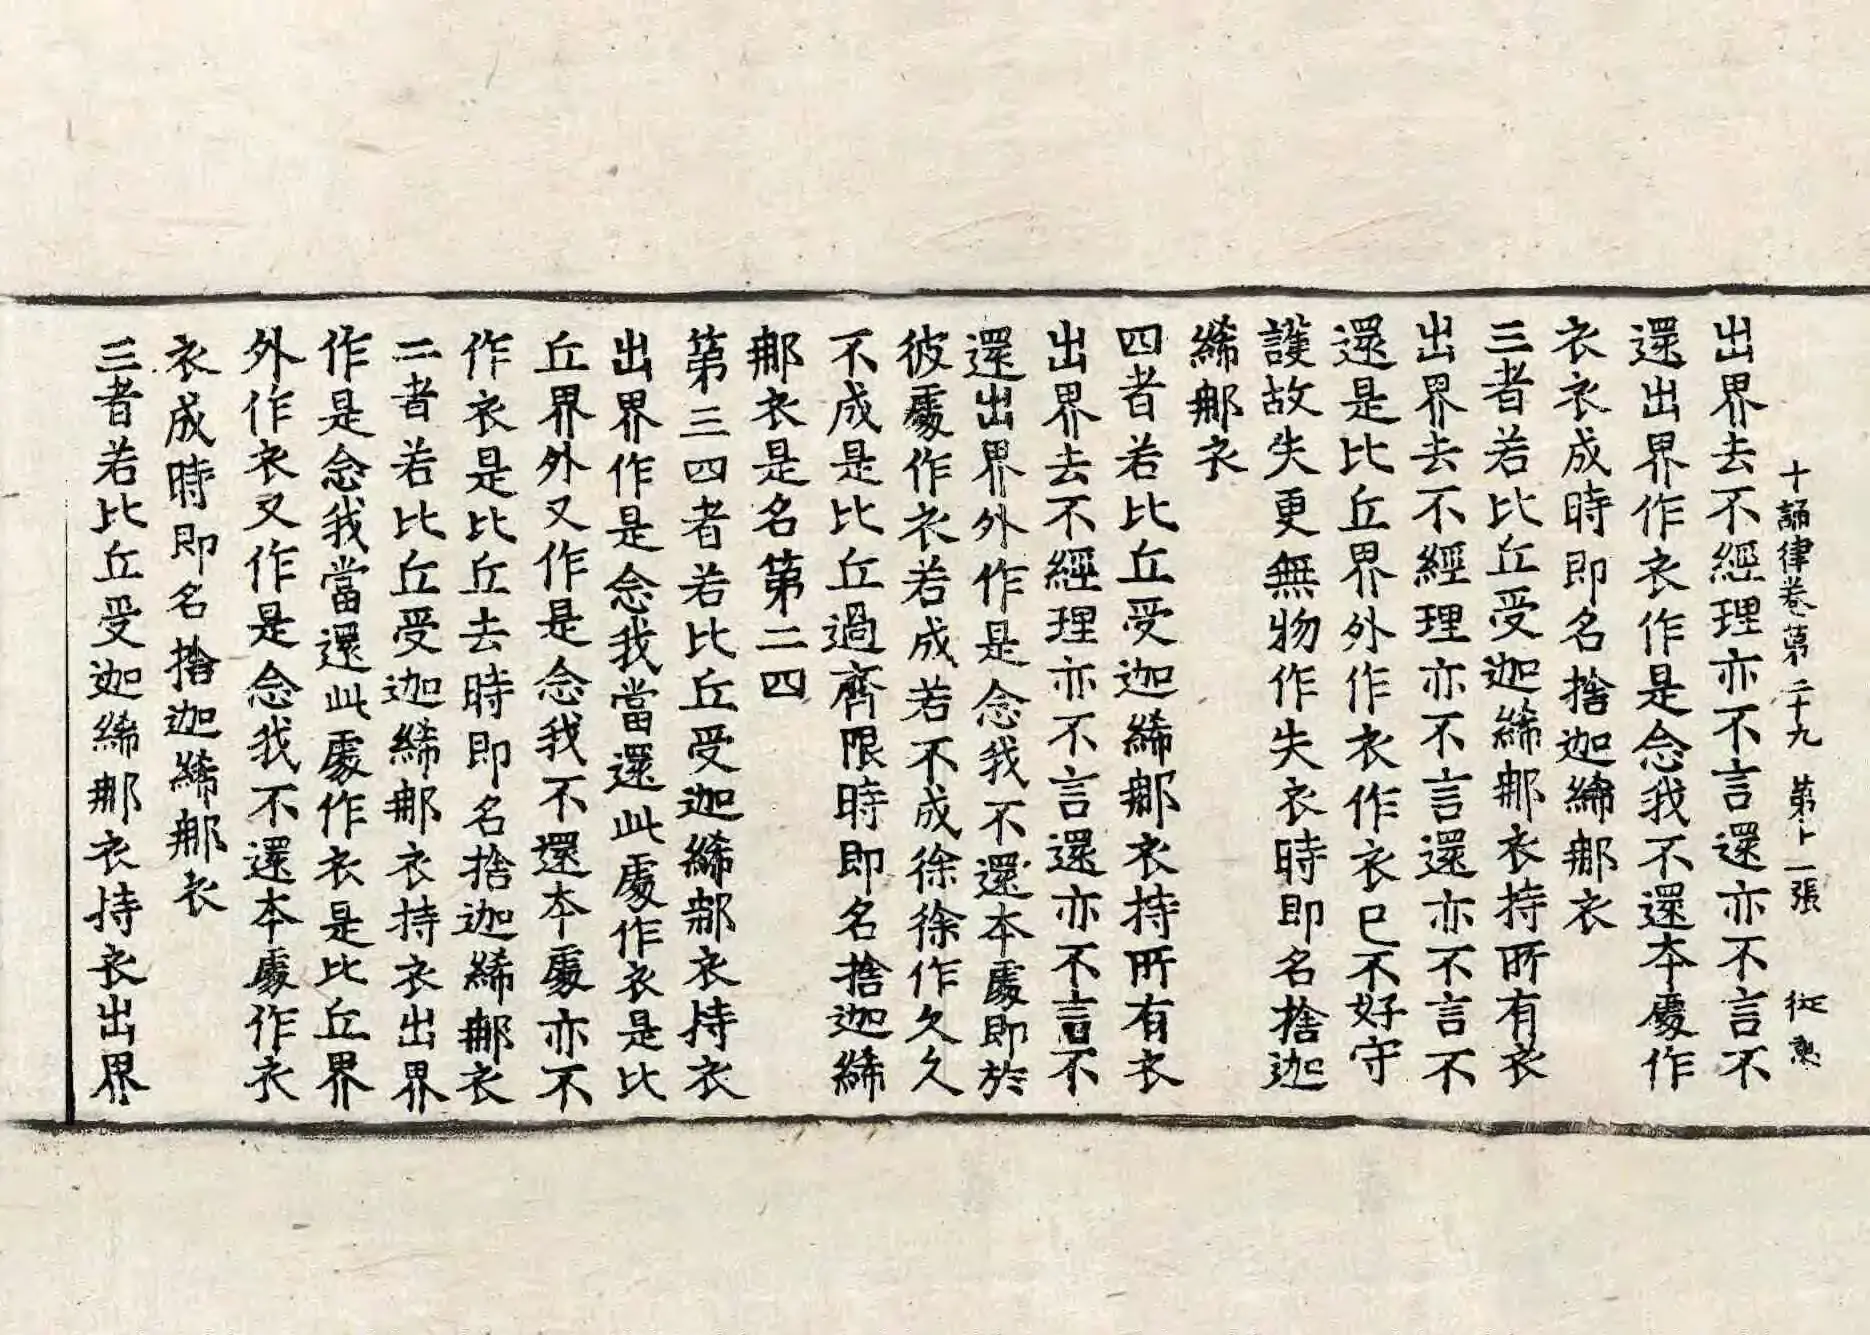 十誦律卷第二十九 第十一張 従
出界去不經理亦不言還亦不言不
還出界作衣作是念我不還本處作
衣衣成時即名捨迦絺那衣
三者若比丘受迦絺那衣持所有衣
出界去不經理亦不言還亦不言不
還是比丘界外作衣作衣已不好守
護故失更無物作失衣時即名捨迦
絺那衣
四者若比丘受迦絺那衣持所有衣
出界去不經理亦不言還亦不言不
還出界外作是念我不還本處即於
彼處作衣若成若不成徐徐作久久
不成是比丘過齊限時即名捨迦絺
那衣是名第二四
第三四者若比丘受迦絺那衣持衣
出界作是念我當還此處作衣是比
丘界外又作是念我不還本處亦不
作衣是比丘去時即名捨迦絺那衣
二者若比丘受迦絺那衣持衣出界
作是念我當還此處作衣是比丘界
外作衣又作是念我不還本處作衣
衣成時即名捨迦絺那衣
三者若比丘受迦絺那衣持衣出界